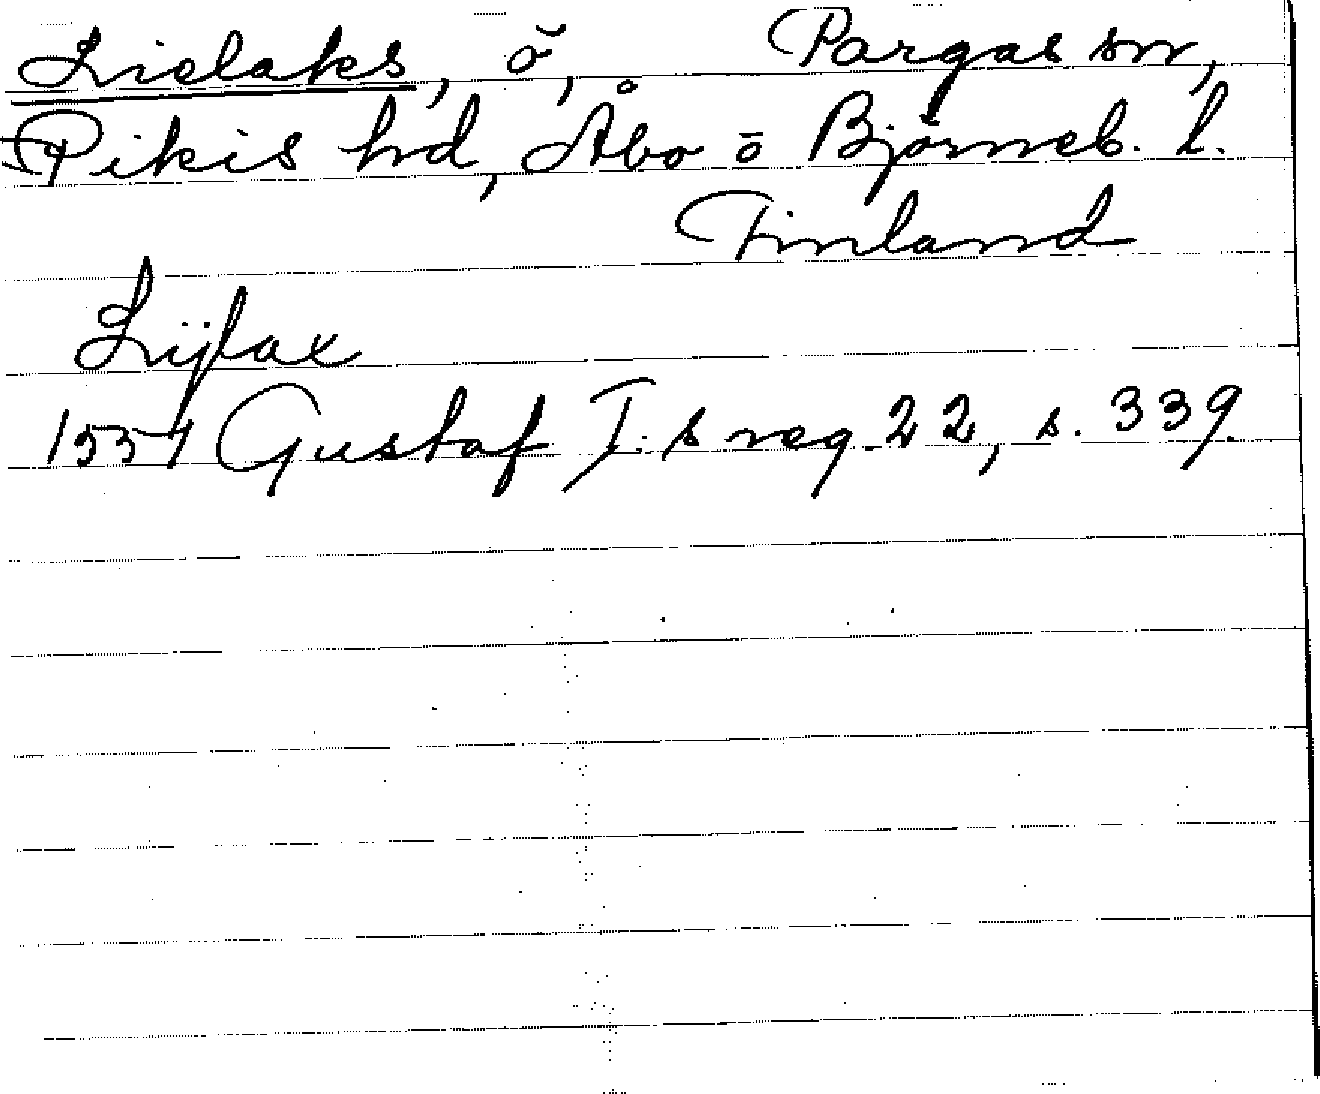 Lielaks, ö, Pargas sn,
Pikis hd, Åbo o Björneb. l.
Finland
Lijlax
1551 Gustaf I:s reg. 22, s. 339.